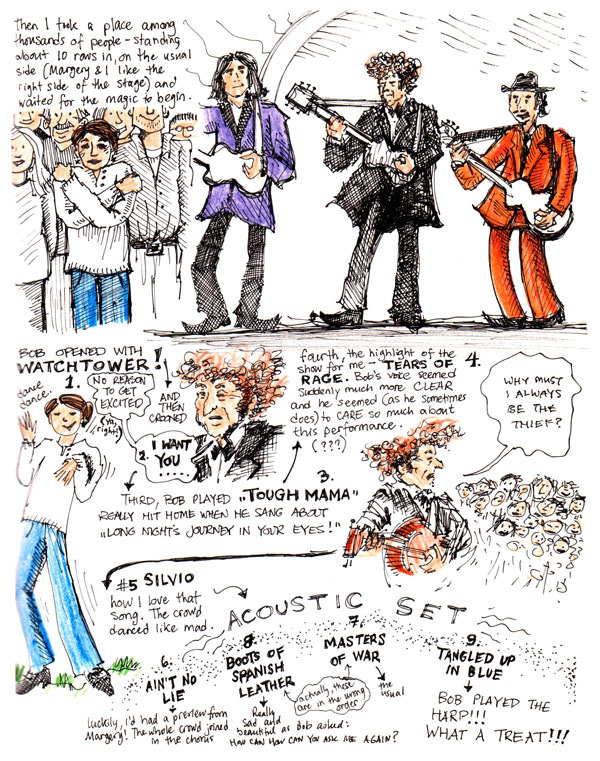 Then I took a place among
thousands of people - standing
about 10 rows in, on the usual
side (Margery & I like the
right side of the stage) and
waited for the magic to begin.
BOB OPENED WITH
WATCHTOWER!
1.
dance
dance
NO REASON
TO GET
EXCITED
(Ya,
right)
AND
THEN
CROONED
2.
I WANT
YOU ....
3.
THIRD, BOB PLAYED "TOUGH MAMA"
REALLY HIT HOME WHEN HE SANG ABOUT
"LONG NIGHT'S JOURNEY IN YOUR EYES!"
fourth, the highlight of the
show for me - TEARS OF
RAGE. Bob's voice seemed
Suddenly much more CLEAR
and he seemed (as he sometimes
does) to CARE so much about
this performance.
(???)
4.
WHY MUST
I ALWAYS
BE THE
THIEF?
#5 SILVIO
how I love that
song. The crowd
danced like mad.
ACOUSTIC SET
6.
AIN'T NO
LIE
luckily, I'd had a preview from
Margery! The whole crowd joined
in the chorus
8.
BOOTS OF
SPANISH
LEATHER
Really
Sad and
beautiful as Bob asked:
HOW CAN HOW CAN YOU ASK ME AGAIN?
7.
MASTERS
OF WAR
the
usual
actually, these
are in the wrong
order
9.
TANGLED UP
IN BLUE
BOB PLAYED THE
HARP!!!
WHAT A TREAT!!!